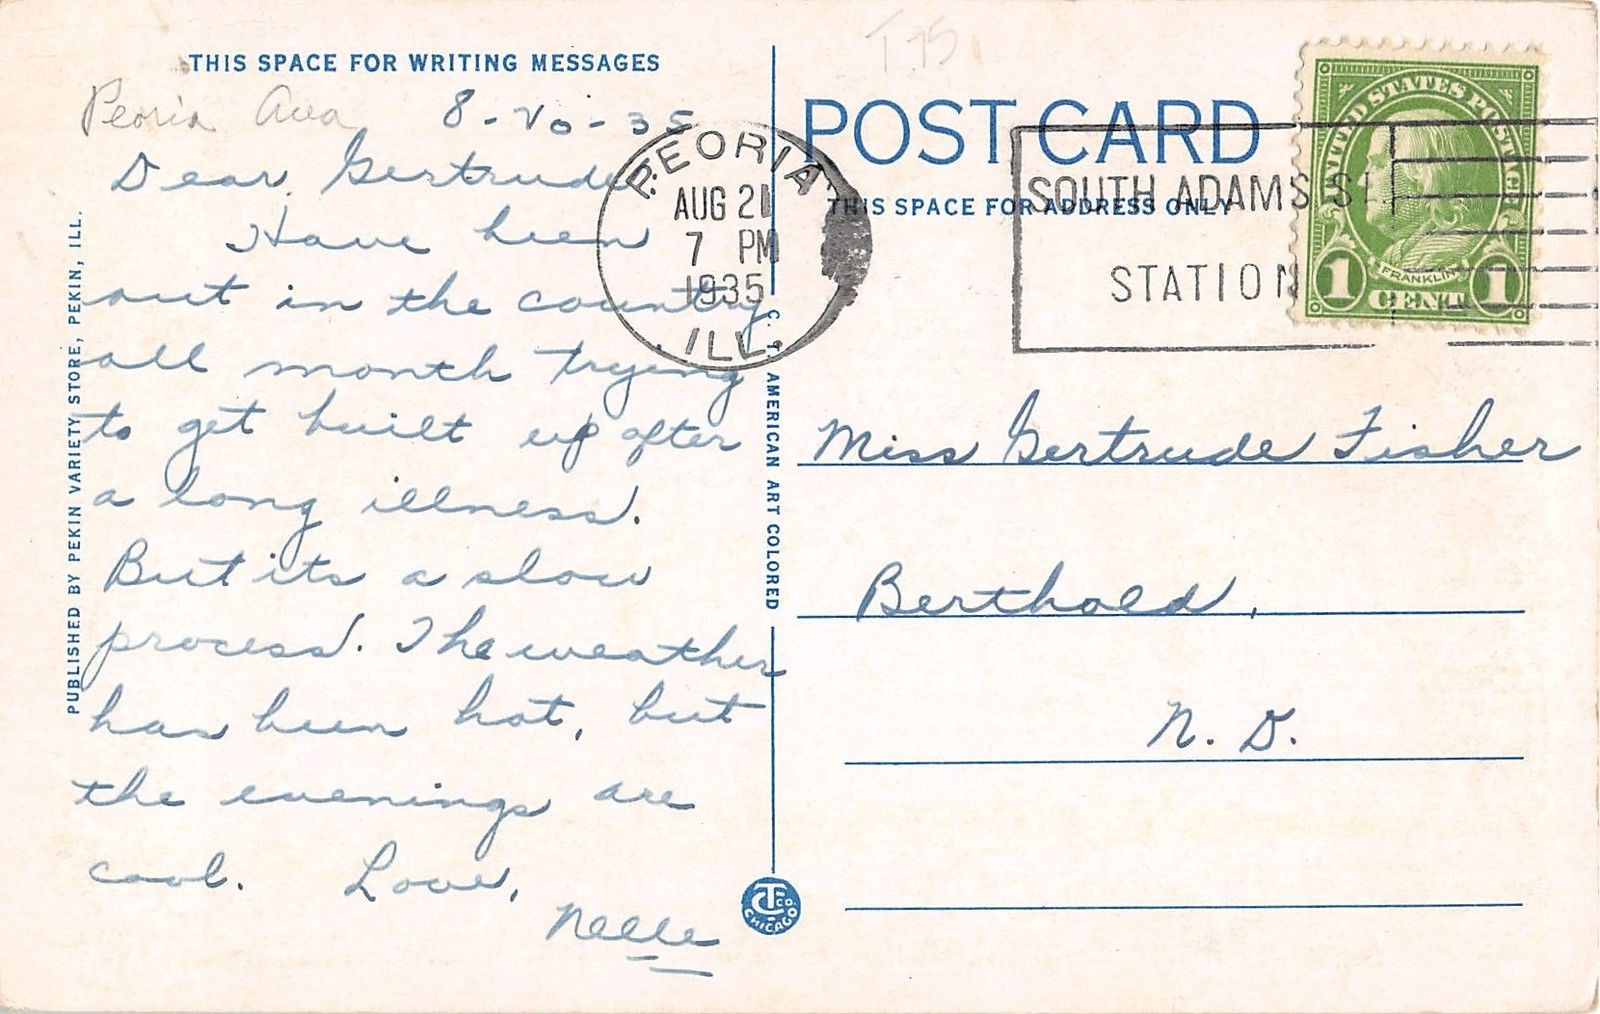 THIS SPACE FOR WRITING MESSAGES
Peoria Area
8-20-35
Dear Gertrude:
Have been
out in the country
all month trying
to get built up after
a long illness.
But its a slow
process. The weather
has been hot, but
the evenings are
cool. Love,
Nelle
PUBLISHED BY PEKIN VARIETY STORE, PEKIN, ILL.
C. T. AMERICAN ART COLORED
CTCO
CHICAGO
PEORIA
AUG 21
7 PM
1935
ILL.
T.75
POST CARD
THIS SPACE FOR ADDRESS ONLY
SOUTH ADAMS ST.
STATION
UNITED STATES POSTAGE
FRANKLIN
1 CENT 1
Miss Gertrude Fisher
Berthold,
N. D.